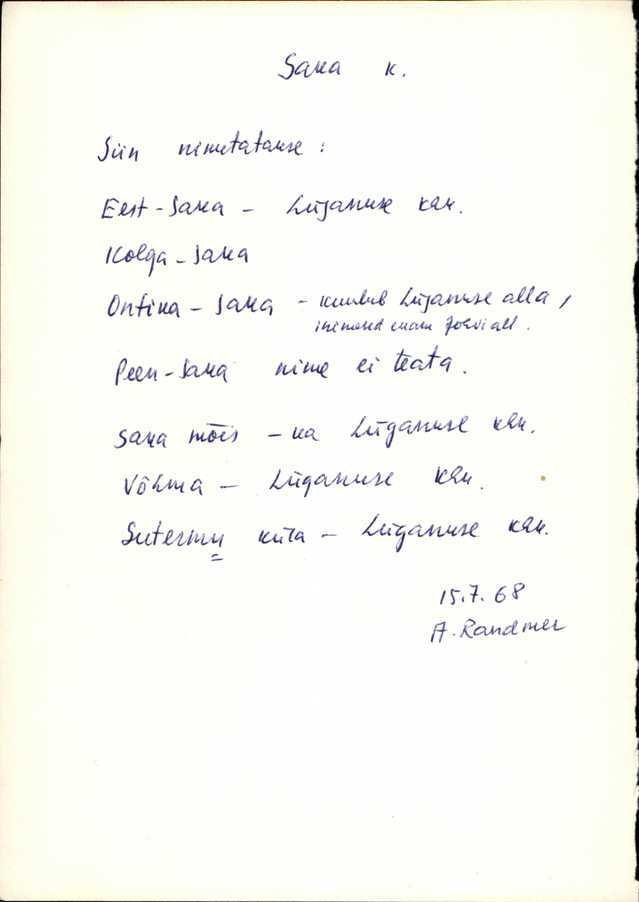 Saka k.
Siin nimetatakse:
Eest-Saka - Lüganuse khk.
Kolga-Saka
Ontika-Saka - kuulub Lüganuse alla,
inimesed enam Jõhvi all.
Peen-Saka nime ei teata.
Saka mõis - ka Lüganuse khk.
Võhma - Lüganuse khk.
Sutermu küla - Lüganuse khk.
15.7.68
A. Randmer